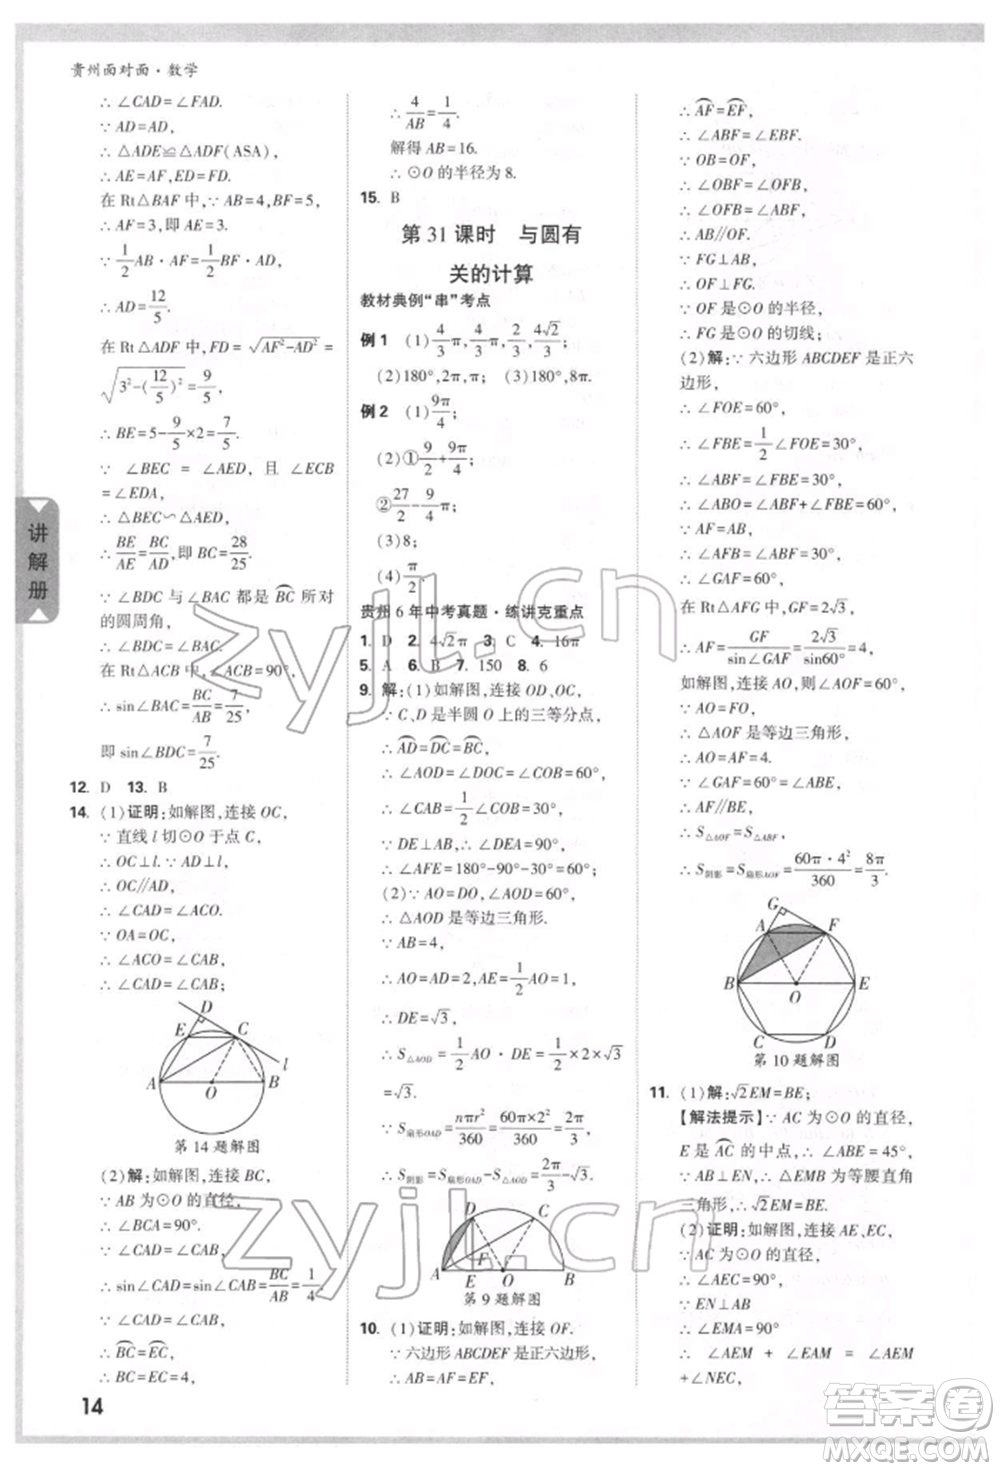 贵州面对面·数学
∴ ∠CAD=∠FAD.
∵ AD=AD,
∴ △ADE≌△ADF(ASA).
∴ AE=AF,ED=FD.
在 Rt△BAF 中,∵ AB=4,BF=5,
∴ AF=3,即 AE=3.
∵ 1/2 AB·AF=1/2 BF·AD,
∴ AD=12/5.
在 Rt△ADF 中,FD=√(AF²-AD²)=
√(3²-(12/5)²)=9/5,
∴ BE=5-9/5×2=7/5.
∵ ∠BEC = ∠AED, 且 ∠ECB
=∠EDA,
∴ △BEC∽△AED,
∴ BE/AE=BC/AD,即 BC=28/25.
∵ ∠BDC 与∠BAC 都是 BC 所对
的圆周角,
∴ ∠BDC=∠BAC.
在 Rt△ACB 中,∠ACB=90°,
∴ sin∠BAC=BC/AB=7/25,
即 sin∠BDC=7/25.
12. D 13. B
14. (1)证明:如解图,连接 OC,
∵ 直线 l 切⊙O 于点 C,
∴ OC⊥l. ∵ AD⊥l,
∴ OC∥AD,
∴ ∠CAD=∠ACO.
∵ OA=OC,
∴ ∠ACO=∠CAB,
∴ ∠CAD=∠CAB;
D
E
C
l
A
O
B
第 14 题解图
(2)解:如解图,连接 BC,
∵ AB 为⊙O 的直径,
∴ ∠BCA=90°.
∴ sin∠CAD=sin∠CAB=BC/AB=1/4
∵ ∠CAD=∠CAB,
∴ BC=EC,
∴ BC=EC=4,
14
∴ 4/AB=1/4.
解得 AB=16.
∴ ⊙O 的半径为 8.
15. B
第 31 课时 与圆有
关的计算
教材典例“串”考点
例 1 (1)4/3π,4/3π,2/3,4√2/3;
(2)180°,π; (3)180°,8π.
例 2 (1)9π/4;
(2)①9/2+9π/4;
②27/2-9/4π;
(3)8;
(4)π/2.
贵州 6 年中考真题·练讲克重点
1. D 2. 4√2π 3. C 4. 16π
5. A 6. B 7. 150 8. 6
9. 解:(1)如解图,连接 OD、OC,
∵ C、D 是半圆 O 上的三等分点,
∴ AD=DC=BC,
∴ ∠AOD=∠DOC=∠COB=60°,
∴ ∠CAB=1/2∠COB=30°,
∵ DE⊥AB,∴ ∠DEA=90°,
∴ ∠AFE=180°-90°-30°=60°;
(2)∵ AO=DO,∠AOD=60°,
∴ △AOD 是等边三角形.
∵ AB=4,
∴ AO=AD=2,AE=1/2AO=1.
∴ DE=√3,
∴ S△AOD=1/2AO·DE=1/2×2×√3
=√3,
∵ S扇形OAD=nπr²/360=60π×2²/360=2π/3,
∴ S阴影=S扇形OAD-S△AOD=2π/3-√3.
D
C
F
A
E
O
B
第 9 题解图
10. (1)证明:如解图,连接 OF.
∵ 六边形 ABCDEF 是正六边形,
∴ AF=EF,
∴ AF=EF,
∴ ∠ABF=∠EBF.
∵ OB=OF,
∴ ∠OBF=∠OFB,
∴ ∠ABF=∠OFB,
∴ AB∥OF.
∵ FG⊥AB,
∴ OF⊥FG.
∵ OF 是⊙O 的半径,
∴ FG 是⊙O 的切线;
(2)解:∵ 六边形 ABCDEF 是正六
边形,
∴ ∠FOE=60°,
∴ ∠FBE=1/2∠FOE=30°,
∴ ∠ABF=∠FBE=30°,
∴ ∠ABO=∠ABF+∠FBE=60°,
∵ AF=AB,
∴ ∠AFB=∠ABF=30°,
∴ ∠GAF=∠ABF+∠AFB=60°,
在 Rt△GAF 中,
∴ AF=GF/sin∠GAF=2√3/sin60°=4,
如解图,连接 AO,则∠AOF=60°,
∵ AO=FO,
∴ △AOF 是等边三角形.
∴ AO=AF=4.
∵ ∠GAF=60°=∠ABE,
∴ AF∥BE,
∴ S△AOF=S△ABF,
∴ S阴影=S扇形AOF=60π·4²/360=8π/3.
G
A
F
B
O
E
C
D
第 10 题解图
11. (1)解:√2EM=BE;
【解法提示】∵ AC 为⊙O 的直径,
E 是 AC 的中点,∴ ∠ABE=45°,
∵ AB⊥EN,∴ △EMB 为等腰直角
三角形,∴ √2EM=BE.
(2)证明:如解图,连接 AE,EC,
∵ AC 为⊙O 的直径,
∴ ∠AEC=90°.
∵ EN⊥AB
∴ ∠EMA=90°.
∴ ∠AEM + ∠EAM = ∠AEM
+∠NEC,
讲解册
zyjl.cn
zyjl.cn
答案圈
MXQE.COM